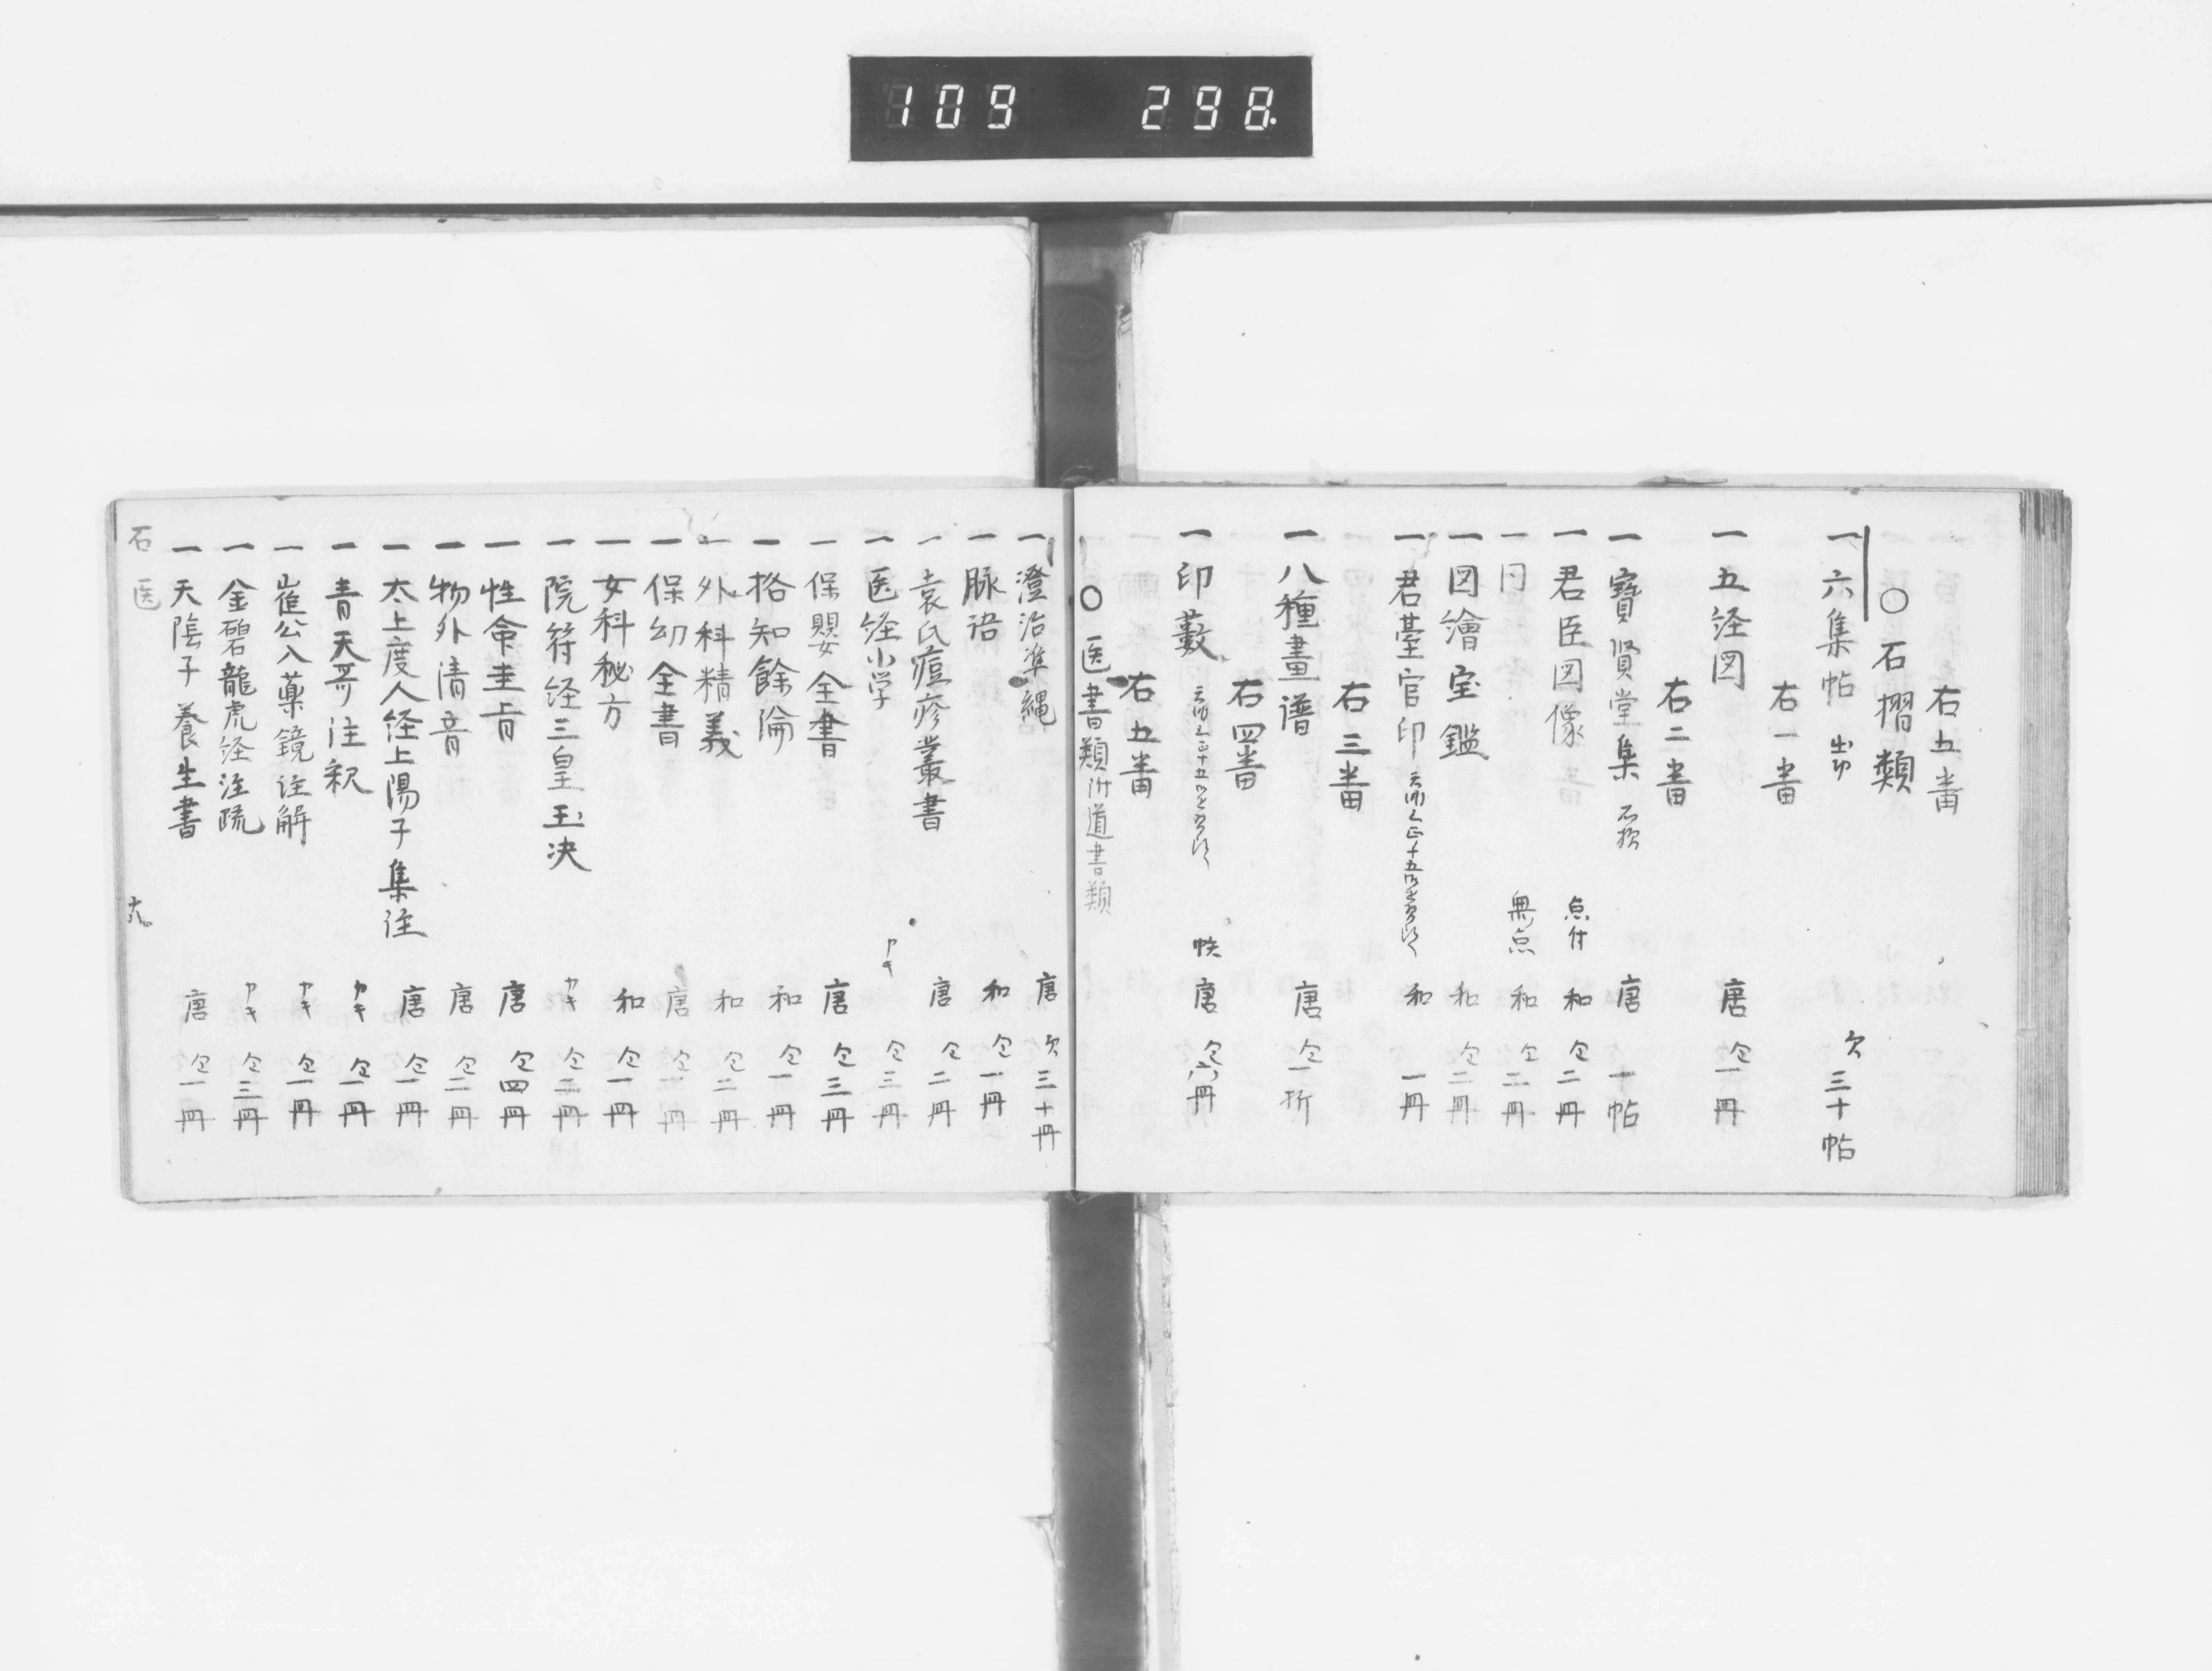 109 298.
右五番
○石摺類
一六集帖 欠三十帖
右一番
一五経図 唐 仝一冊
右二番
一寶賢堂集 石摺 唐 一帖
一君臣図像 点付 和 仝二冊
一同 無点 和 仝二冊
一図繪宝鑑 和 仝二冊
一君臺官印 和 一冊
右三番
一八種畫譜 唐 仝一折
右四番
一印藪 帙 唐 仝六冊
右五番
○医書類 附道書類
一澄治準縄 唐 欠三十冊
一脉語 和 仝一冊
一袁氏痘疹叢書 唐 仝二冊
一医経小学 カキ 仝三冊
一保嬰全書 唐 仝三冊
一格知餘論 和 仝一冊
一外科精義 和 仝二冊
一保幼全書 唐 仝一冊
一女科秘方 和 仝一冊
一院符経三皇玉决 カキ 仝二冊
一性命圭旨 唐 仝四冊
一物外清音 唐 仝二冊
一太上度人経上陽子集注 唐 仝一冊
一青天哥注釈 カキ 仝一冊
一崔公入藥鏡注解 カキ 仝一冊
一金碧龍虎経注疏 カキ 仝三冊
一天隂子養生書 唐 仝一冊
石 医